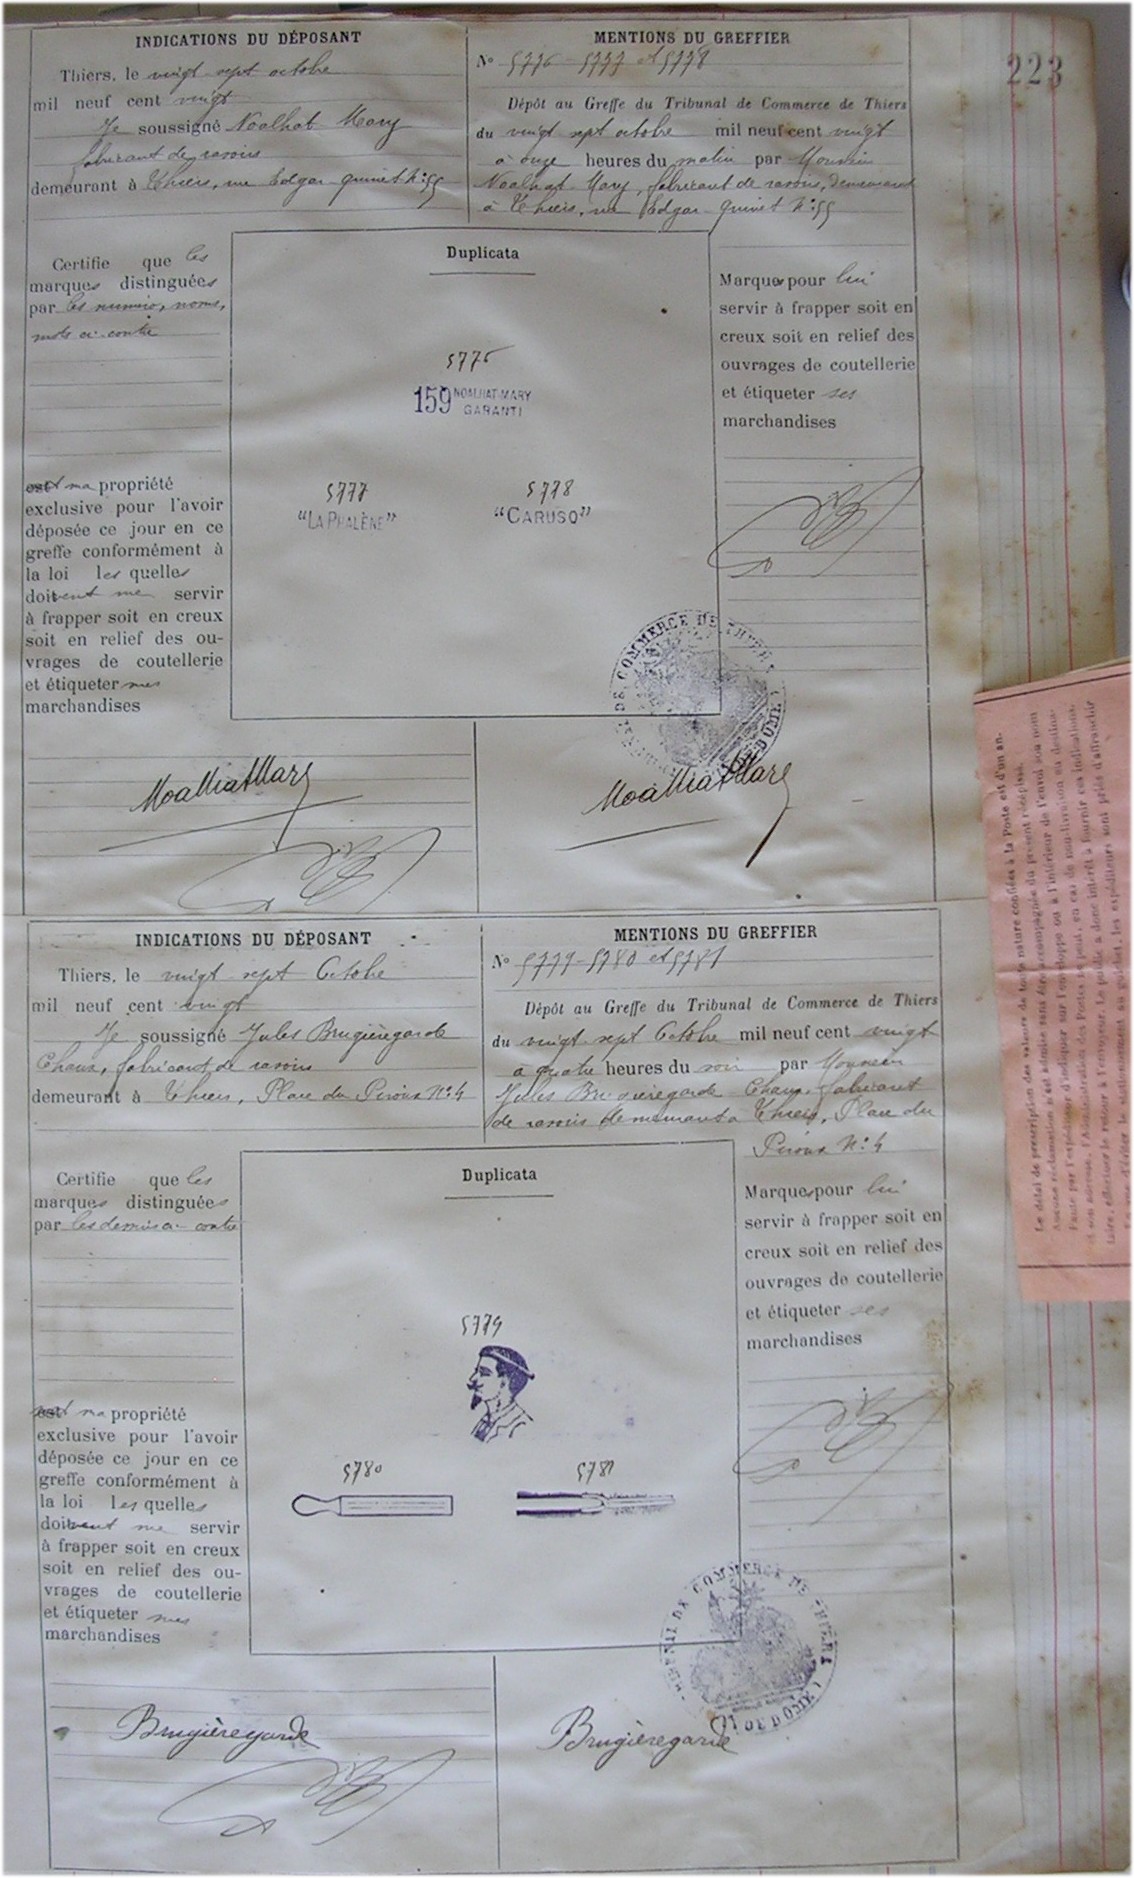 223
INDICATIONS DU DÉPOSANT
Thiers, le vingt-sept octobre
mil neuf cent vingt
Je soussigné Noalhat-Mary
fabricant de rasoirs
demeurant à Thiers, rue Edgar-Quinet N°:55
MENTIONS DU GREFFIER
N° 5776 - 5777 et 5778
Dépôt au Greffe du Tribunal de Commerce de Thiers
du vingt sept octobre mil neuf cent vingt
à onze heures du matin par Monsieur
Noalhat-Mary, fabricant de rasoirs, demeurant
à Thiers, rue Edgar-Quinet N°:55
Certifie que les
marques distinguées
par les numéro, noms,
mots ci-contre
est ma propriété
exclusive pour l'avoir
déposée ce jour en ce
greffe conformément à
la loi les quelles
doivent me servir
à frapper soit en creux
soit en relief des ou-
vrages de coutellerie
et étiqueter mes
marchandises
Duplicata
5776
159 NOALHAT-MARY
GARANTI
5777
"LA PHALÈNE"
5778
"CARUSO"
Marques pour lui
servir à frapper soit en
creux soit en relief des
ouvrages de coutellerie
et étiqueter ses
marchandises
DE COMMERCE DE THIERS
DOME
NoalhatMary
NoalhatMary
INDICATIONS DU DÉPOSANT
Thiers, le vingt-sept Octobre
mil neuf cent vingt
Je soussigné Jules Brugièregarde
Chaux, fabricant de rasoirs
demeurant à Thiers, Place du Piroux N°:4
MENTIONS DU GREFFIER
N° 5779 - 5780 et 5781
Dépôt au Greffe du Tribunal de Commerce de Thiers
du vingt-sept Octobre mil neuf cent vingt
à quatre heures du soir par Monsieur
Jules Brugièregarde Chaux, fabricant
de rasoirs demeurant à Thiers, Place du
Piroux N°:4
Certifie que les
marques distinguées
par les dessins ci-contre
est ma propriété
exclusive pour l'avoir
déposée ce jour en ce
greffe conformément à
la loi les quelles
doivent me servir
à frapper soit en creux
soit en relief des ou-
vrages de coutellerie
et étiqueter mes
marchandises
Duplicata
5779
5780
5781
Marques pour lui
servir à frapper soit en
creux soit en relief des
ouvrages de coutellerie
et étiqueter ses
marchandises
DE COMMERCE DE THIERS
DE DOME
Brugièregarde
Brugièregarde
Le délai de prescription des valeurs de toute nature confiées à la Poste est d'un an.
Aucune réclamation n'est admise sans être accompagnée du présent récépissé.
Faute par l'expéditeur d'indiquer sur l'enveloppe ou à l'intérieur de l'envoi son nom
et son adresse, l'Administration des Postes ne peut, en cas de non-livraison au destina-
taire, effectuer le retour à l'envoyeur. Le public a donc intérêt à fournir ces indications.
En vue d'éviter le stationnement au guichet, les expéditeurs sont priés d'affranchir